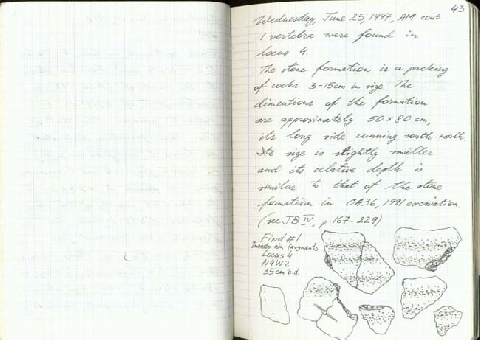 43
Wednesday, June 25, 1997, AM cont
1 vertebra were found in
locus 4
The stone formation is a packing
of rocks 3-15cm in size. The
dimentions of the formation
are approximately 50 x 80 cm,
its long side running south north.
Its size is slightly smaller
and its relative depth is
similar to that of the stone
formation in 1991 excavation
(see JB IV, p 167 229)
Find #1
fragments
Locus 4
N4W2
35cm b.d.